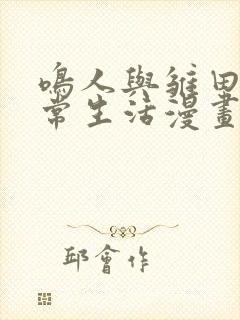 鳴人與雛田
常生活漫畫
邱會作